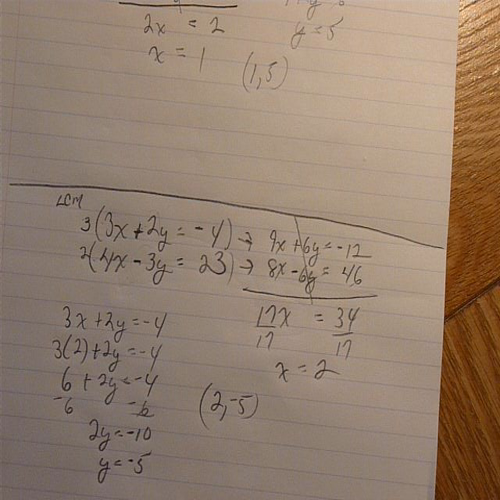 2x = 2
y = 5
x = 1
(1,5)
LCM
3(3x + 2y = -4) → 9x + 6y = -12
2(4x - 3y = 23) → 8x - 6y = 46
17x = 34
17 17
x = 2
3x + 2y = -4
3(2) + 2y = -4
6 + 2y = -4
-6 -6
2y = -10
y = -5
(2,-5)